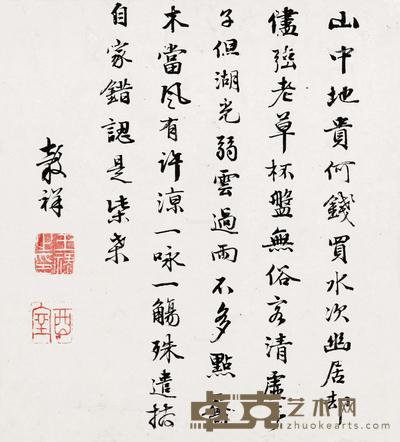 山中地貴何錢買水次幽居却
儘強老草杯盤無俗客清虛
子俱湖光弱雲過雨不多點
木當風有許涼一咏一觴殊遣
自家錯認是柴桑
穀祥
酉室
卓克艺术网